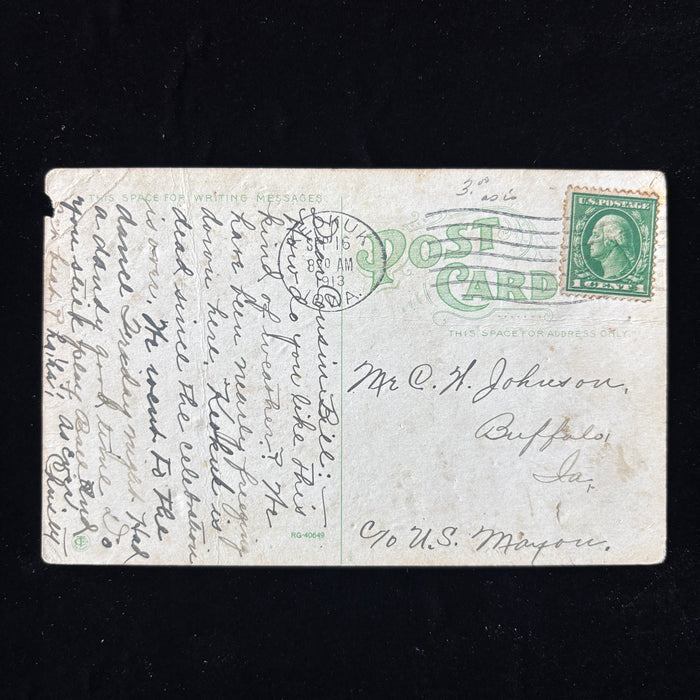 THIS SPACE FOR WRITING MESSAGES
Dear Cousin Bill:-
How do you like this
kind of weather? We
have been nearly freezing
down here. Keokuk is
dead since the celebration
is over. We went to the
dance Friday night. Had
a dandy good time. Do
you still
As ever
RG-40649
3.00
as is
KUK
SEP 16
8 30 AM
1913
POST
CARD
U.S. POSTAGE
1 CENT 1
THIS SPACE FOR ADDRESS ONLY.
Mr C. H. Johnson,
Buffalo,
Ia,
c/o U.S. Mayon.